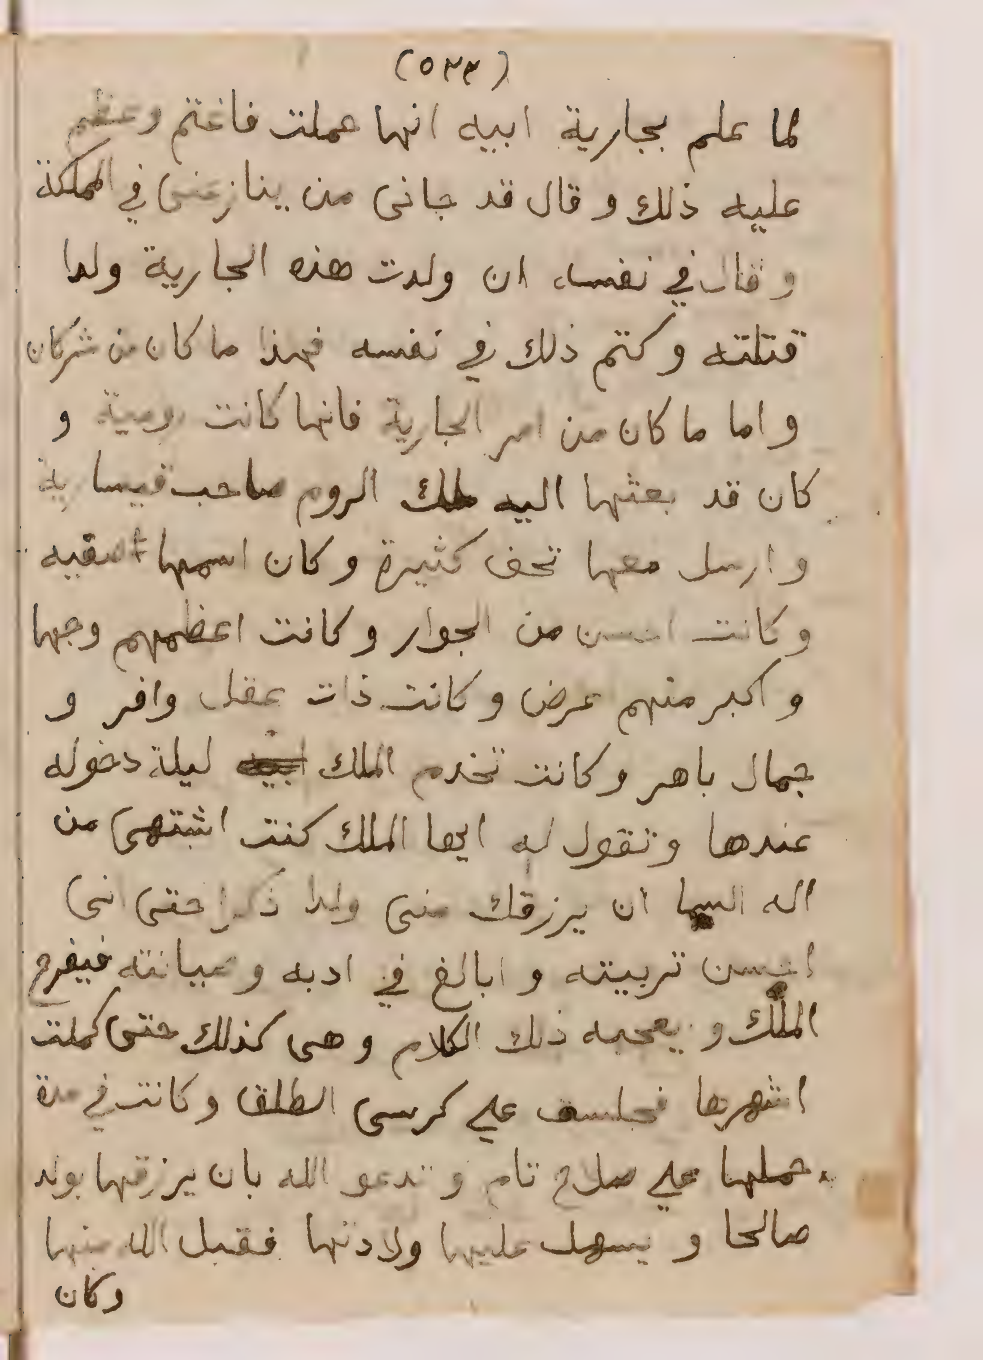 (٥٣٣)
لما علم بجارية ابيه انها حملت فاغتم وعظم
عليه ذلك و قال قد جانى من ينازعنى في المملكة
و قال في نفسه ان ولدت هذه الجارية ولدا
قتلته و كتم ذلك في نفسه فهذا ما كان من شركان
و اما ما كان من امر الجارية فانها كانت رومية و
كان قد بعثها اليه ملك الروم صاحب قيسارية
و ارسل معها تحف كثيرة و كان اسمها صقيه
و كانت احسن من الجوار و كانت اعظمهم وجها
و اكبر منهم عرض و كانت ذات عقل وافر و
جمال باهر و كانت تخدم الملك ليلة دخوله
عندها و تقول له ايها الملك كنت اشتهى من
اله السما ان يرزقك منى ولدا ذكرا حتى انى
احسن تربيته و ابالغ في ادبه و صيانته فيفرح
الملك و يعجبه ذلك الكلام و هى كذلك حتى كملت
اشهرها فجلست علي كرسى الطلق و كانت في مدة
حملها علي صلاح تام و تدعو الله بان يرزقها بولد
صالحا و يسهل عليها ولادتها فقبل الله منها
وكان